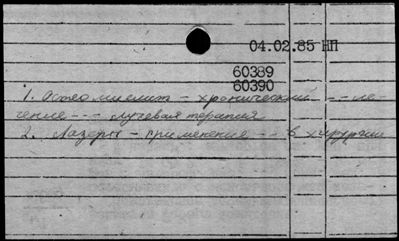 04.02.85 НП
60389
60390
1. Остеомиелит - хронический -- ле-
чение --- лучевая терапия
2. Лазеры - применение --- в хирургии